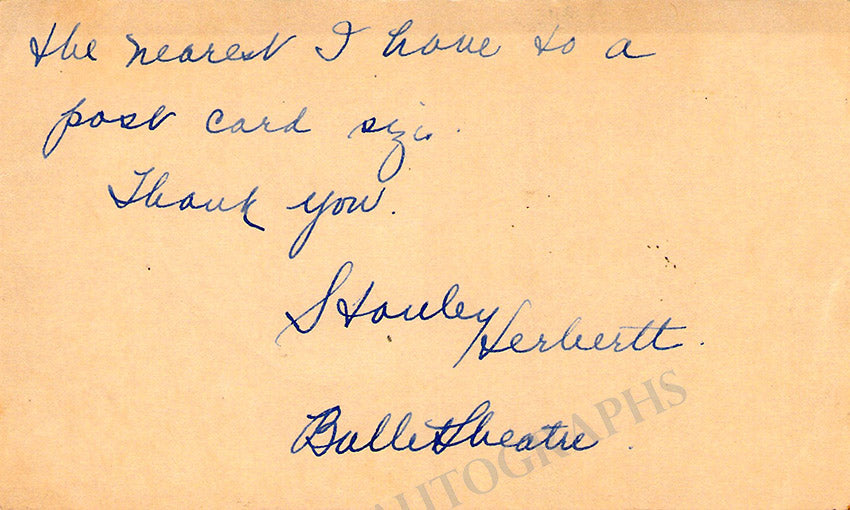 the nearest I have to a
post card size.
Thank you.
Stanley
Herbertt.
Ballet Theatre.
AUTOGRAPHS